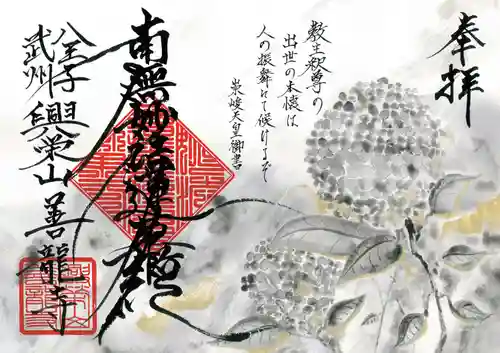 奉拝
教主釈尊の
出世の本懐は
人の振舞にて候けるぞ
崇峻天皇御書
南無妙法蓮華経
八王子
武州 興栄山 善龍寺